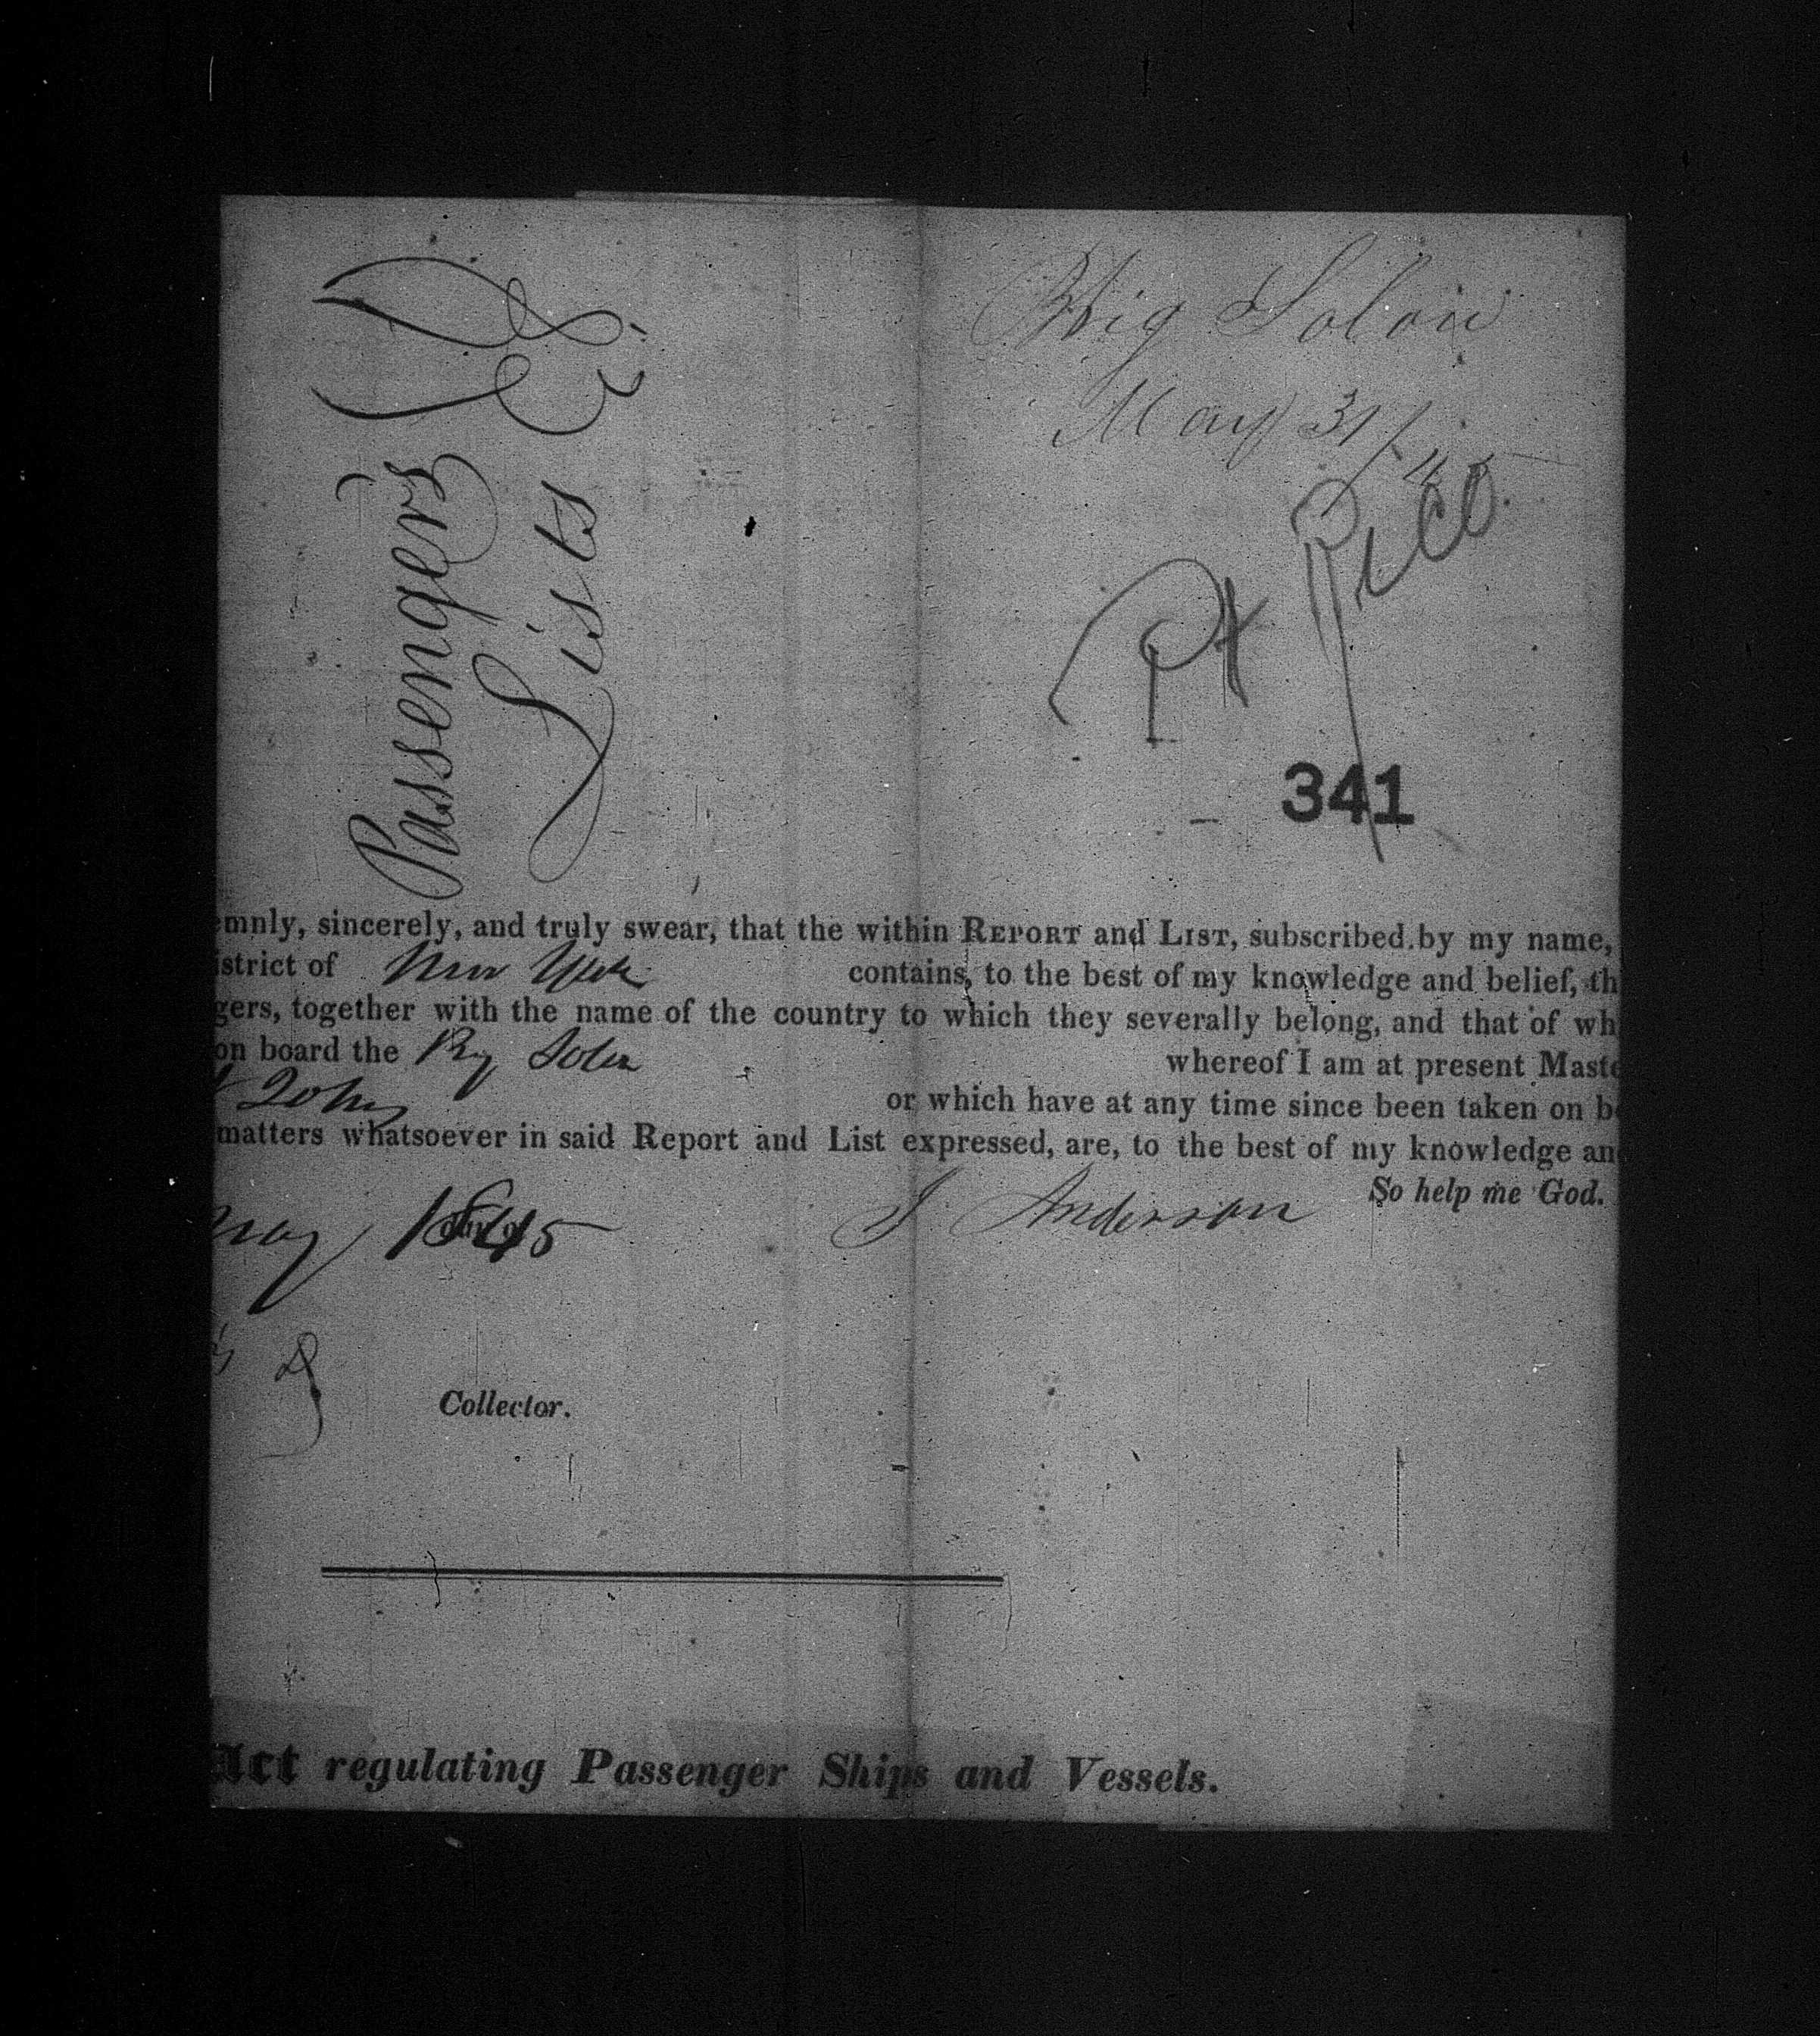 Passengers
Lists
Brig Solon
May 31/45
Pt Rico
341
emnly, sincerely, and truly swear, that the within REPORT and LIST, subscribed by my name,
istrict of New York contains, to the best of my knowledge and belief, th
gers, together with the name of the country to which they severally belong, and that of wh
on board the Brig Solon whereof I am at present Maste
t Johns or which have at any time since been taken on b
matters whatsoever in said Report and List expressed, are, to the best of my knowledge an
So help me God.
May 1845 J Anderson
Collector.
Act regulating Passenger Ships and Vessels.